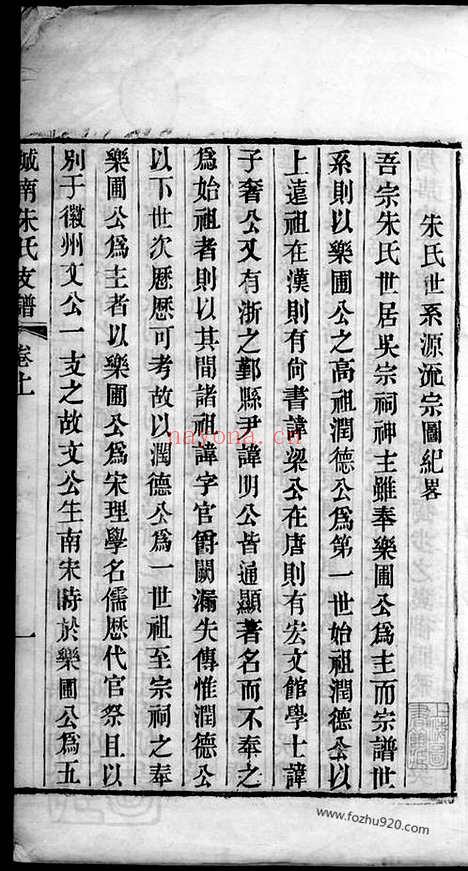 朱氏世系源流宗圖紀畧
吾宗朱氏世居吳宗祠神主雖奉樂圃公為主而宗譜世
系則以樂圃公之高祖潤德公爲第一世始祖潤德公以
上遠祖在漢則有尙書諱梁公在唐則有宏文館學士諱
子奢公又有浙之鄞縣尹諱明公皆通顯著名而不奉之
爲始祖者則以其間諸祖諱字官爵闕漏失傳惟潤德公
以下世次歷歷可考故以潤德公爲一世祖至宗祠之奉
樂圃公爲主者以樂圃公爲宋理學名儒歷代官祭且以
別于徽州文公一支之故文公生南宋時於樂圃公爲五
城南朱氏支譜 卷上 一
nayona.cn
www.fozhu920.com